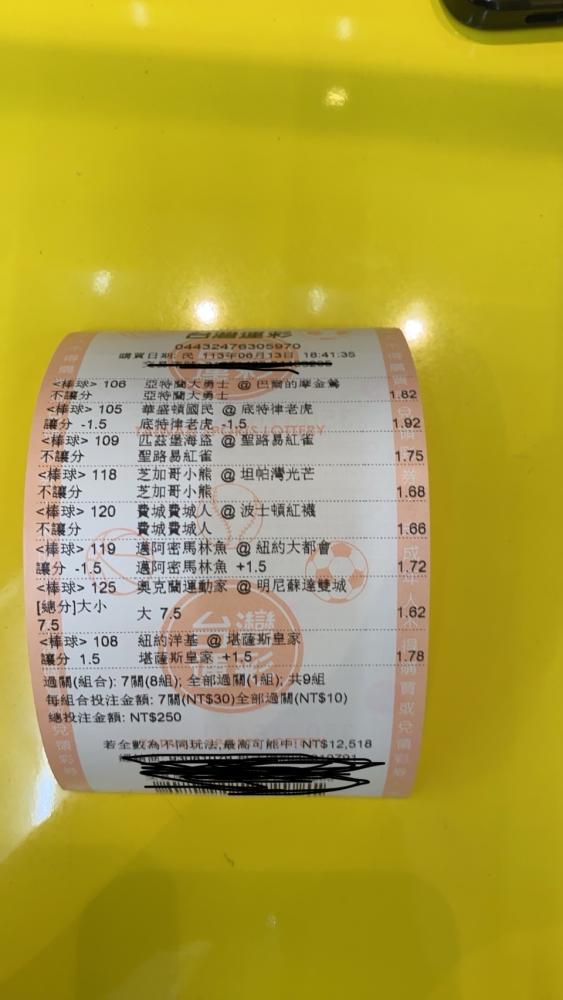 台灣運彩
04432476305970
購買日期: 民 113年06月13日 18:41:35
<棒球> 106 亞特蘭大勇士 @ 巴爾的摩金鶯
不讓分 亞特蘭大勇士 1.82
<棒球> 105 華盛頓國民 @ 底特律老虎
讓分 -1.5 底特律老虎 -1.5 1.92
<棒球> 109 匹茲堡海盜 @ 聖路易紅雀
不讓分 聖路易紅雀 1.75
<棒球> 118 芝加哥小熊 @ 坦帕灣光芒
不讓分 芝加哥小熊 1.68
<棒球> 120 費城費城人 @ 波士頓紅襪
不讓分 費城費城人 1.66
<棒球> 119 邁阿密馬林魚 @ 紐約大都會
讓分 -1.5 邁阿密馬林魚 +1.5 1.72
<棒球> 125 奧克蘭運動家 @ 明尼蘇達雙城
[總分]大小 大 7.5 1.62
7.5
<棒球> 108 紐約洋基 @ 堪薩斯皇家
讓分 1.5 堪薩斯皇家 +1.5 1.78
過關(組合): 7關(8組); 全部過關(1組); 共9組
每組合投注金額: 7關(NT$30)全部過關(NT$10)
總投注金額: NT$250
若全數為不同玩法,最高可能中 NT$12,518
LOTTERY
台灣